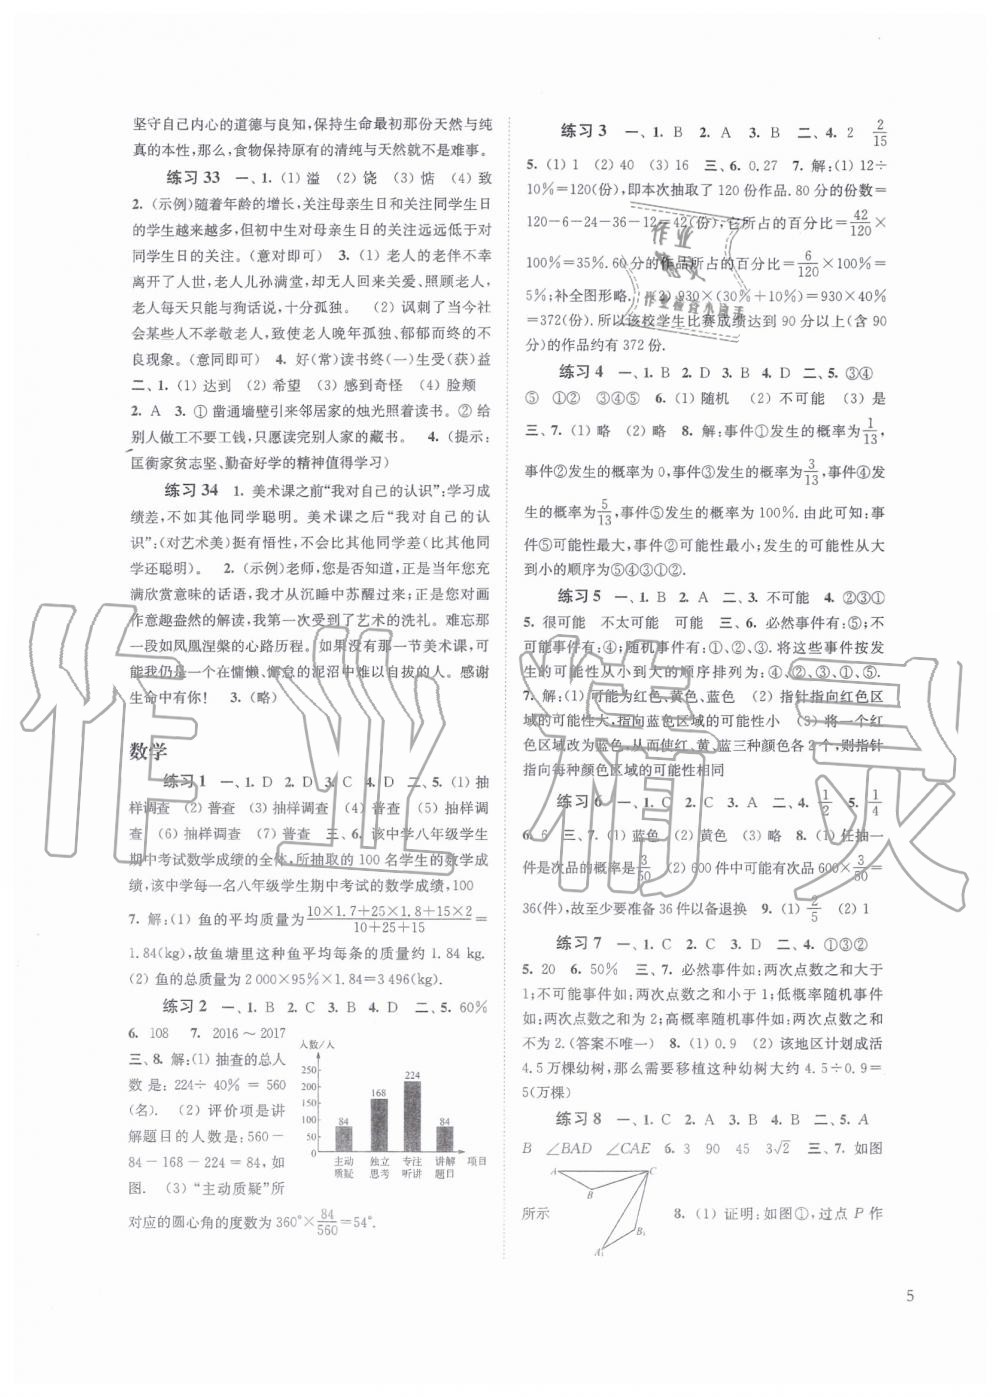 坚守自己内心的道德与良知,保持生命最初那份天然与纯
真的本性,那么,食物保持原有的清纯与天然就不是难事。
练习 33 一、1. (1) 溢 (2) 饶 (3) 惦 (4) 致
2. (示例)随着年龄的增长,关注母亲生日和关注同学生日
的学生越来越多,但初中生对母亲生日的关注远远低于对
同学生日的关注。(意对即可) 3. (1) 老人的老伴不幸
离开了人世,老人儿孙满堂,却无人回来关爱、照顾老人,
老人每天只能与狗话说,十分孤独。 (2) 讽刺了当今社
会某些人不孝敬老人,致使老人晚年孤独、郁郁而终的不
良现象。(意同即可) 4. 好(常)读书终(一)生受(获)益
二、1. (1) 达到 (2) 希望 (3) 感到奇怪 (4) 脸颊
2. A 3. ① 凿通墙壁引来邻居家的烛光照着读书。② 给
别人做工不要工钱,只愿读完别人家的藏书。 4. (提示:
匡衡家贫志坚、勤奋好学的精神值得学习)
练习 34 1. 美术课之前“我对自己的认识”:学习成
绩差,不如其他同学聪明。美术课之后“我对自己的认
识”:(对艺术美)挺有悟性,不会比其他同学差(比其他同
学还聪明)。 2. (示例)老师,您是否知道,正是当年您充
满欣赏意味的话语,我才从沉睡中苏醒过来;正是您对画
作意趣盎然的解读,我第一次受到了艺术的洗礼。难忘那
一段如凤凰涅槃的心路历程。如果没有那一节美术课,可
能我仍是一个在慵懒、懈怠的泥沼中难以自拔的人。感谢
生命中有你! 3. (略)
数学
练习 1 一、1. D 2. D 3. C 4. D 二、5. (1) 抽
样调查 (2) 普查 (3) 抽样调查 (4) 普查 (5) 抽样调
查 (6) 抽样调查 (7) 普查 三、6. 该中学八年级学生
期中考试数学成绩的全体,所抽取的 100 名学生的数学成
绩,该中学每一名八年级学生期中考试的数学成绩,100
7. 解:(1) 鱼的平均质量为 (10×1.7+25×1.8+15×2)/(10+25+15) =
1.84(kg),故鱼塘里这种鱼平均每条的质量约 1.84 kg.
(2) 鱼的总质量为 2 000×95%×1.84=3 496(kg).
练习 2 一、1. B 2. C 3. B 4. D 二、5. 60%
6. 108 7. 2016～2017
三、8. 解:(1) 抽查的总人
数是:224÷40%=560
(名). (2) 评价项是讲
解题目的人数是:560-
84-168-224=84,如
图. (3) “主动质疑”所
对应的圆心角的度数为 360°×84/560=54°.
人数/人
250
200
150
100
50
0
84 168 224 84
主动质疑 独立思考 专注听讲 讲解题目 项目
练习 3 一、1. B 2. A 3. B 二、4. 2 2/15
5. (1) 1 (2) 40 (3) 16 三、6. 0.27 7. 解:(1) 12÷
10%=120(份),即本次抽取了 120 份作品. 80 分的份数=
120-6-24-36-12=42(份),它所占的百分比=42/120×
100%=35%. 60 分的作品所占的百分比=6/120×100%=
5%;补全图形略. (2) 930×(30%+10%)=930×40%
=372(份). 所以该校学生比赛成绩达到 90 分以上(含 90
分)的作品约有 372 份.
练习 4 一、1. B 2. D 3. B 4. D 二、5. ③④
⑤ ①② ③④⑤ 6. (1) 随机 (2) 不可能 (3) 是
三、7. (1) 略 (2) 略 8. 解:事件①发生的概率为1/13,
事件②发生的概率为 0,事件③发生的概率为3/13,事件④发
生的概率为5/13,事件⑤发生的概率为 100%. 由此可知:事
件⑤可能性最大,事件②可能性最小;发生的可能性从大
到小的顺序为⑤④③①②.
练习 5 一、1. B 2. A 二、3. 不可能 4. ②③①
5. 很可能 不太可能 可能 三、6. 必然事件有:⑤;不
可能事件有:④;随机事件有:①、②、③. 将这些事件按发
生的可能性从小到大的顺序排列为:④、②、③、①、⑤.
7. 解:(1) 可能为红色、黄色、蓝色 (2) 指针指向红色区
域的可能性大,指向蓝色区域的可能性小 (3) 将一个红
色区域改为蓝色,从而使红、黄、蓝三种颜色各 2 个,则指针
指向每种颜色区域的可能性相同
练习 6 一、1. C 2. C 3. A 二、4. 1/2 5. 1/4
6. 6 三、7. (1) 蓝色 (2) 黄色 (3) 略 8. (1) 任抽一
件是次品的概率是3/50 (2) 600 件中可能有次品 600×3/50=
36(件),故至少要准备 36 件以备退换 9. (1) 2/5 (2) 1
练习 7 一、1. C 2. C 3. D 二、4. ①③②
5. 20 6. 50% 三、7. 必然事件如:两次点数之和大于
1;不可能事件如:两次点数之和小于 1;低概率随机事件
如:两次点数之和为 2;高概率随机事件如:两次点数之和
不为 2.(答案不唯一) 8. (1) 0.9 (2) 该地区计划成活
4.5 万棵幼树,那么需要移植这种幼树大约 4.5÷0.9=
5(万棵)
练习 8 一、1. C 2. A 3. A 4. B 二、5. A
B ∠BAD ∠CAE 6. 3 90 45 3√2 三、7. 如图
所示
A B C B₁ A₁
8. (1) 证明:如图①,过点 P 作
5
作业精灵
作业
精灵
作业检查小助手